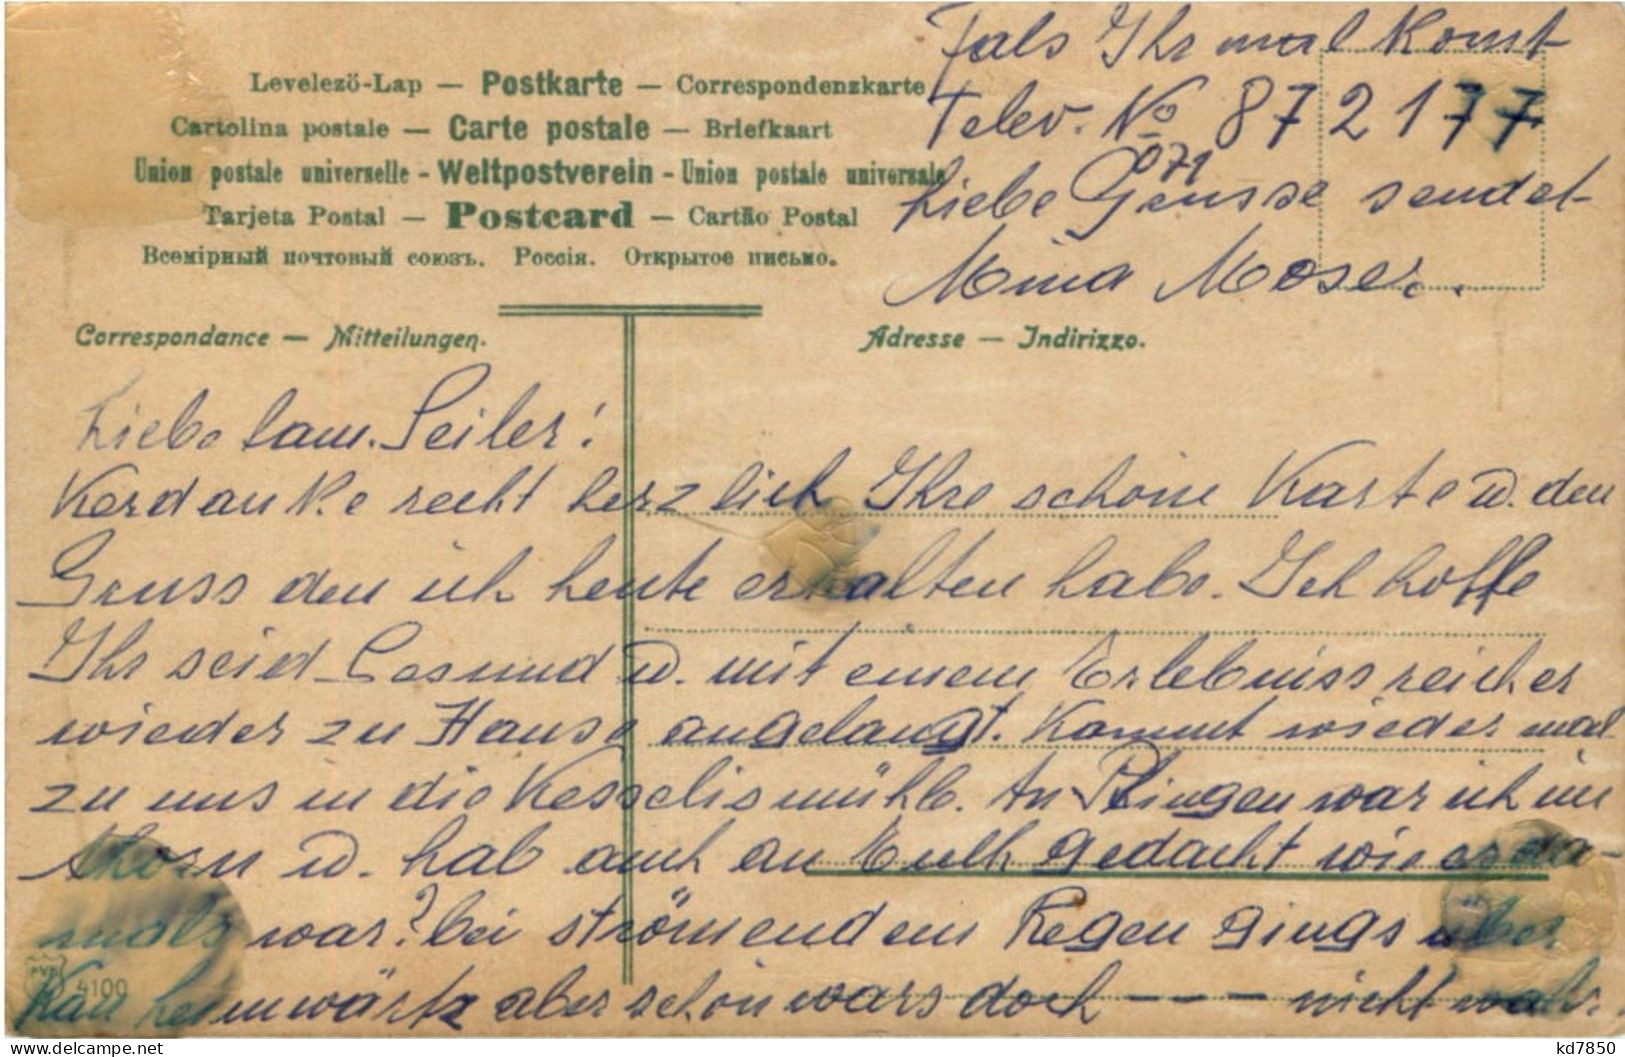 Levelezö-Lap — Postkarte — Correspondenzkarte
Cartolina postale — Carte postale — Briefkaart
Union postale universelle - Weltpostverein - Union postale universale
Tarjeta Postal — Postcard — Cartão Postal
Всемірный почтовый союзъ. Россія. Открытое письмо.
Correspondance — Mitteilungen.
Adresse — Indirizzo.
Liebe Fam. Seiler!
Verdanke recht herzlich Ihre schöne Karte u. den
Gruss den ich heute erhalten habe. Ich hoffe
Ihr seid Gesund u. mit einem Erlebnissreicher
wieder zu Hause angelangt. Kommt wieder mal
zu uns in die Kesselismühle. An Pfingen war ich im
u. hab auch an Euch gedacht wie es da-
mals war? bei strömendem Regen gings über
heimwärtz aber schön wars doch - - - nicht wahr.
Fals Ihr mal Komt
Telev. No 872177
071
Liebe Grüsse sendet
Mina Moser.
PVB
4100
delcampe.net
kd7850